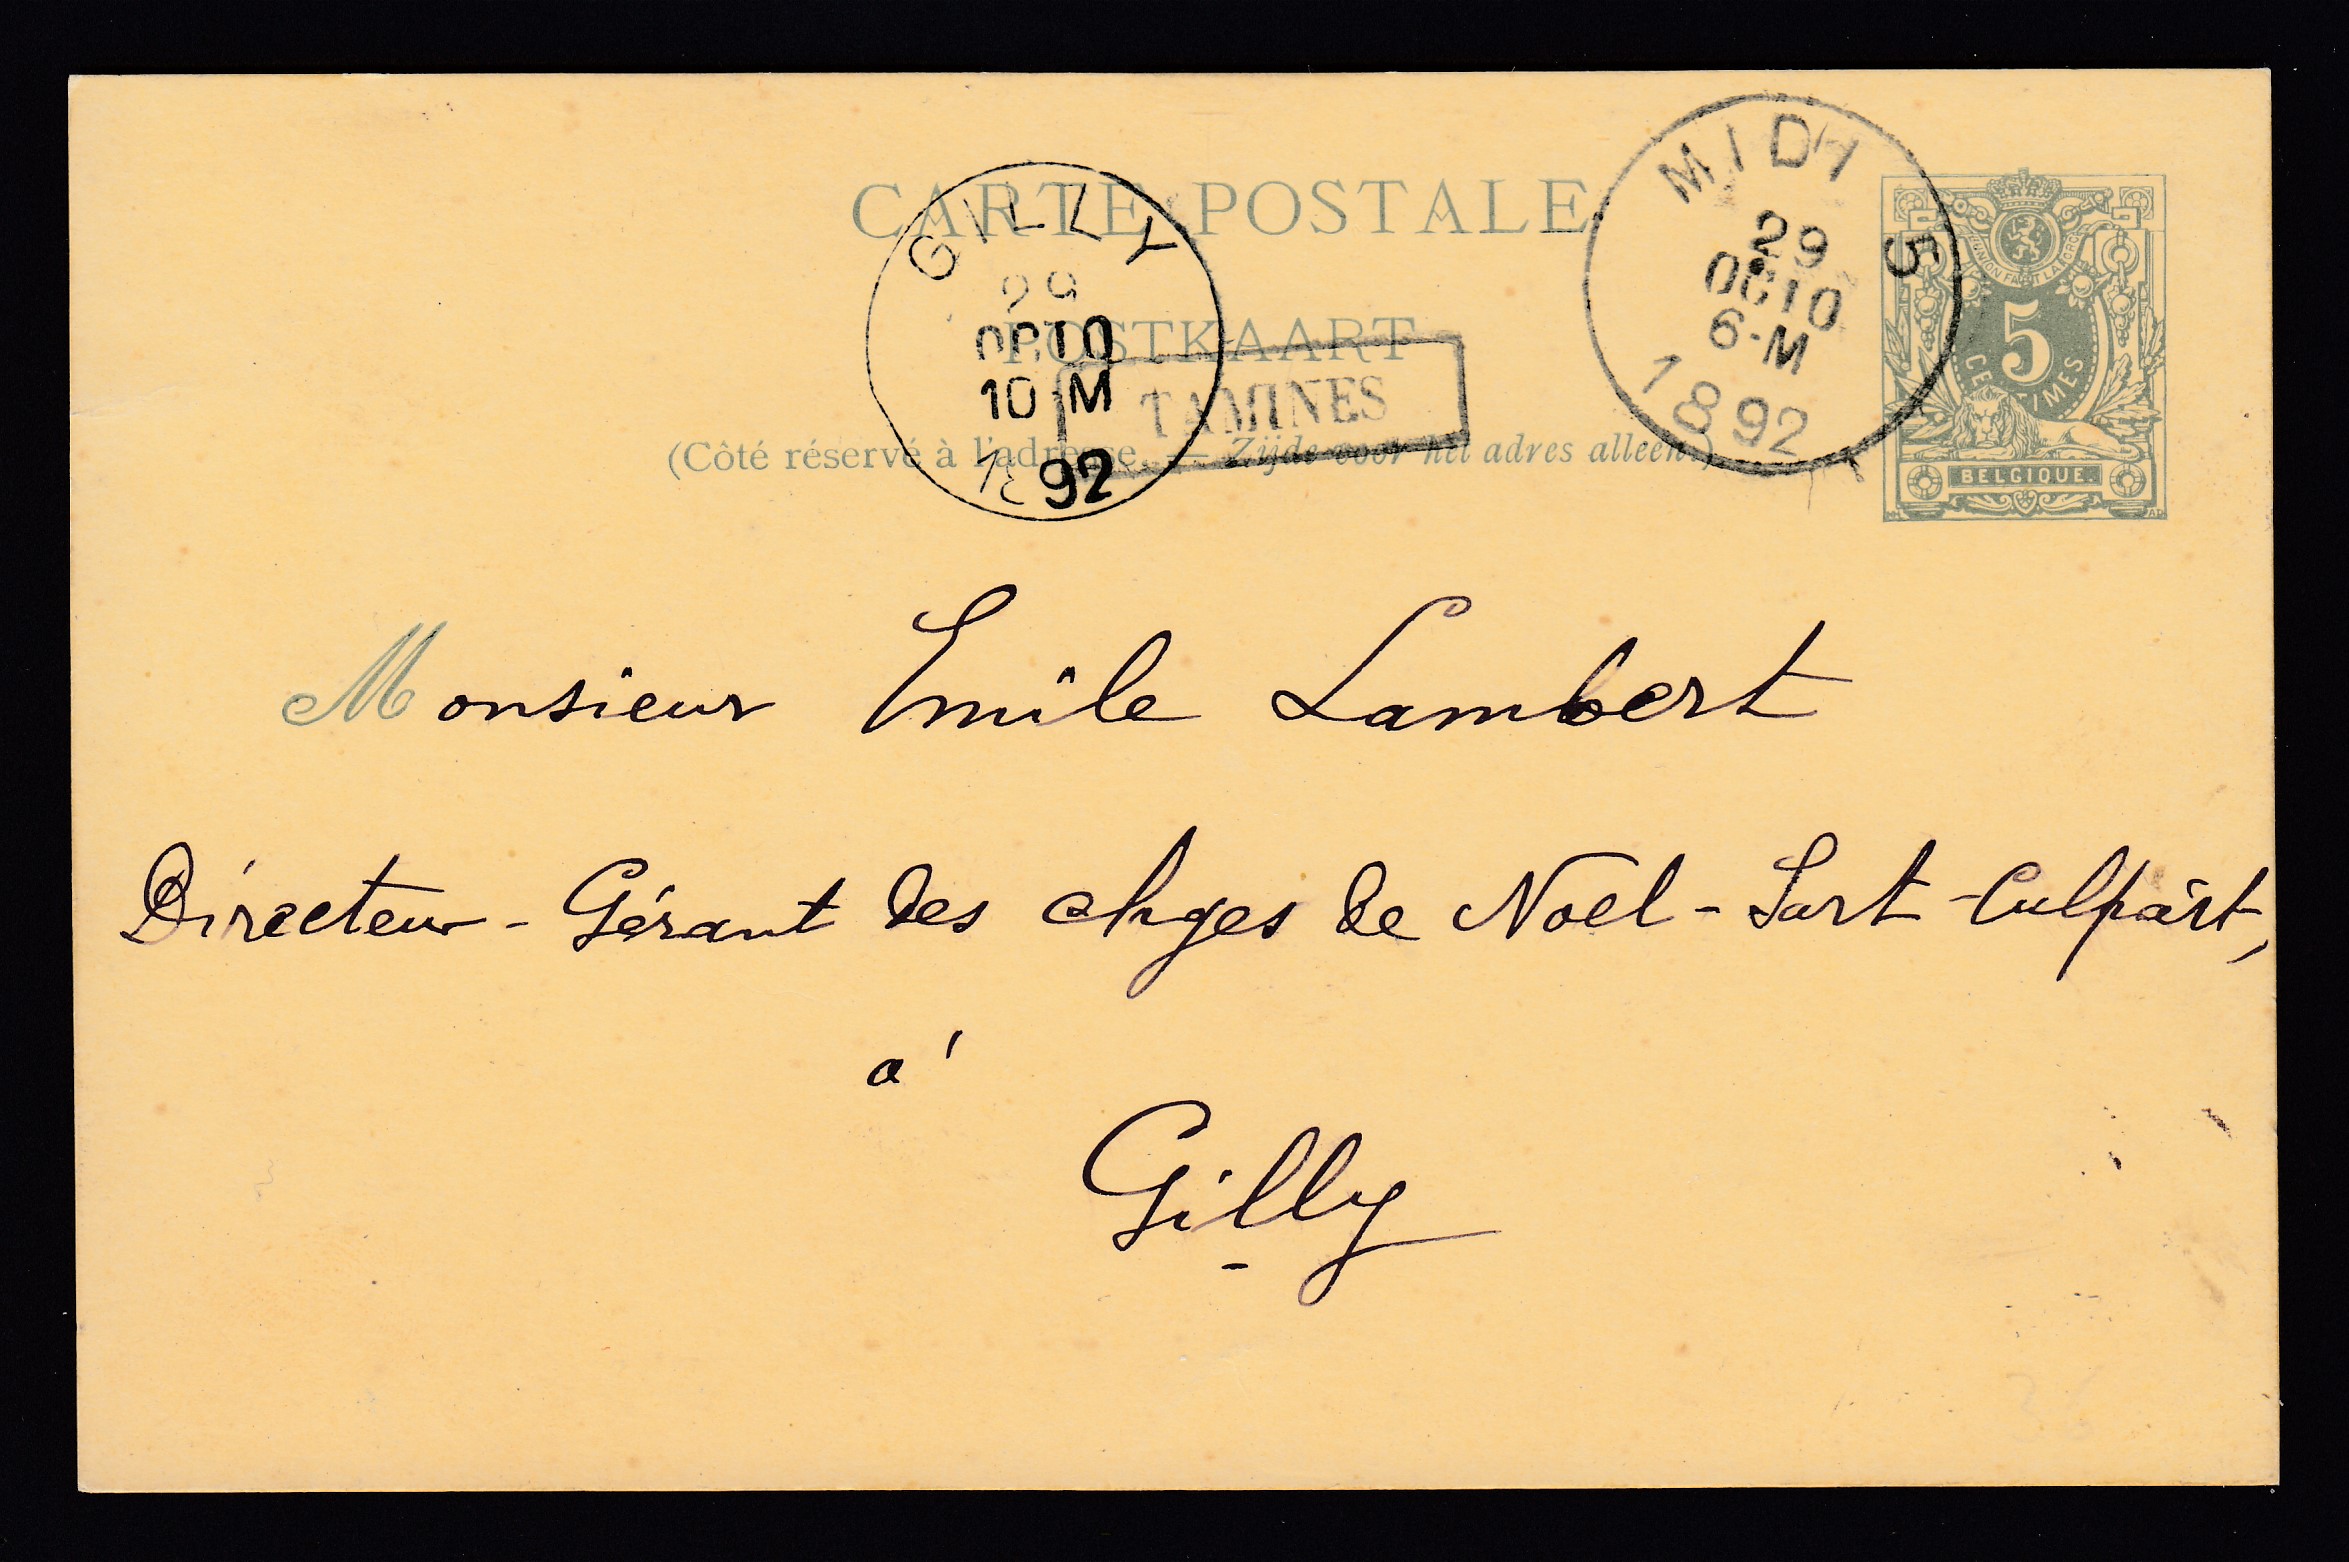 CARTE POSTALE
POSTKAART
(Côté réservé à l'adresse. — Zijde voor het adres alleen.)
GILLY
29
OCTO
10 M
1892
TAMINES
MIDI 5
29
OCTO
6-M
1892
L'UNION FAIT LA FORCE
5
CENTIMES
BELGIQUE.
Monsieur Emile Lambert
Directeur-Gérant des chges de Noël-Sart-Culpart,
à
Gilly